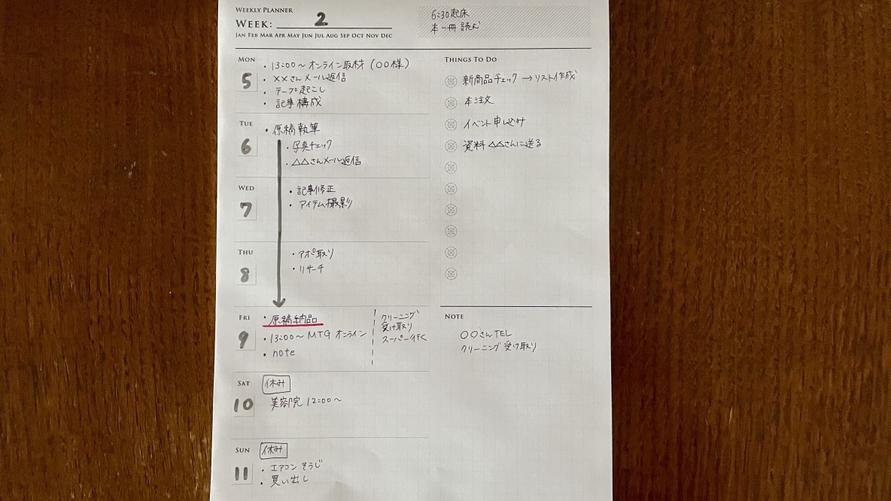 WEEKLY PLANNER
WEEK: 2
JAN FEB MAR APR MAY JUN JUL AUG SEP OCT NOV DEC
6:30起床
本一冊読む
MON
5
・13:00〜オンライン取材（〇〇様）
・××さんメール返信
・テープ起こし
・記事構成
TUE
6
・原稿執筆
・写真チェック
・△△さんメール返信
WED
7
・記事修正
・アイテム撮影
THU
8
・アポ取り
・リサーチ
FRI
9
・原稿納品
・13:00〜MTG オンライン
・note
クリーニング
受け取り
スーパー
SAT
10
休み
美容院 12:00〜
SUN
11
休み
・エアコンそうじ
・買い出し
THINGS TO DO
新商品チェック→リスト作成
本注文
イベント申し込み
資料 △△さんに送る
NOTE
〇〇さんTEL
クリーニング受け取り